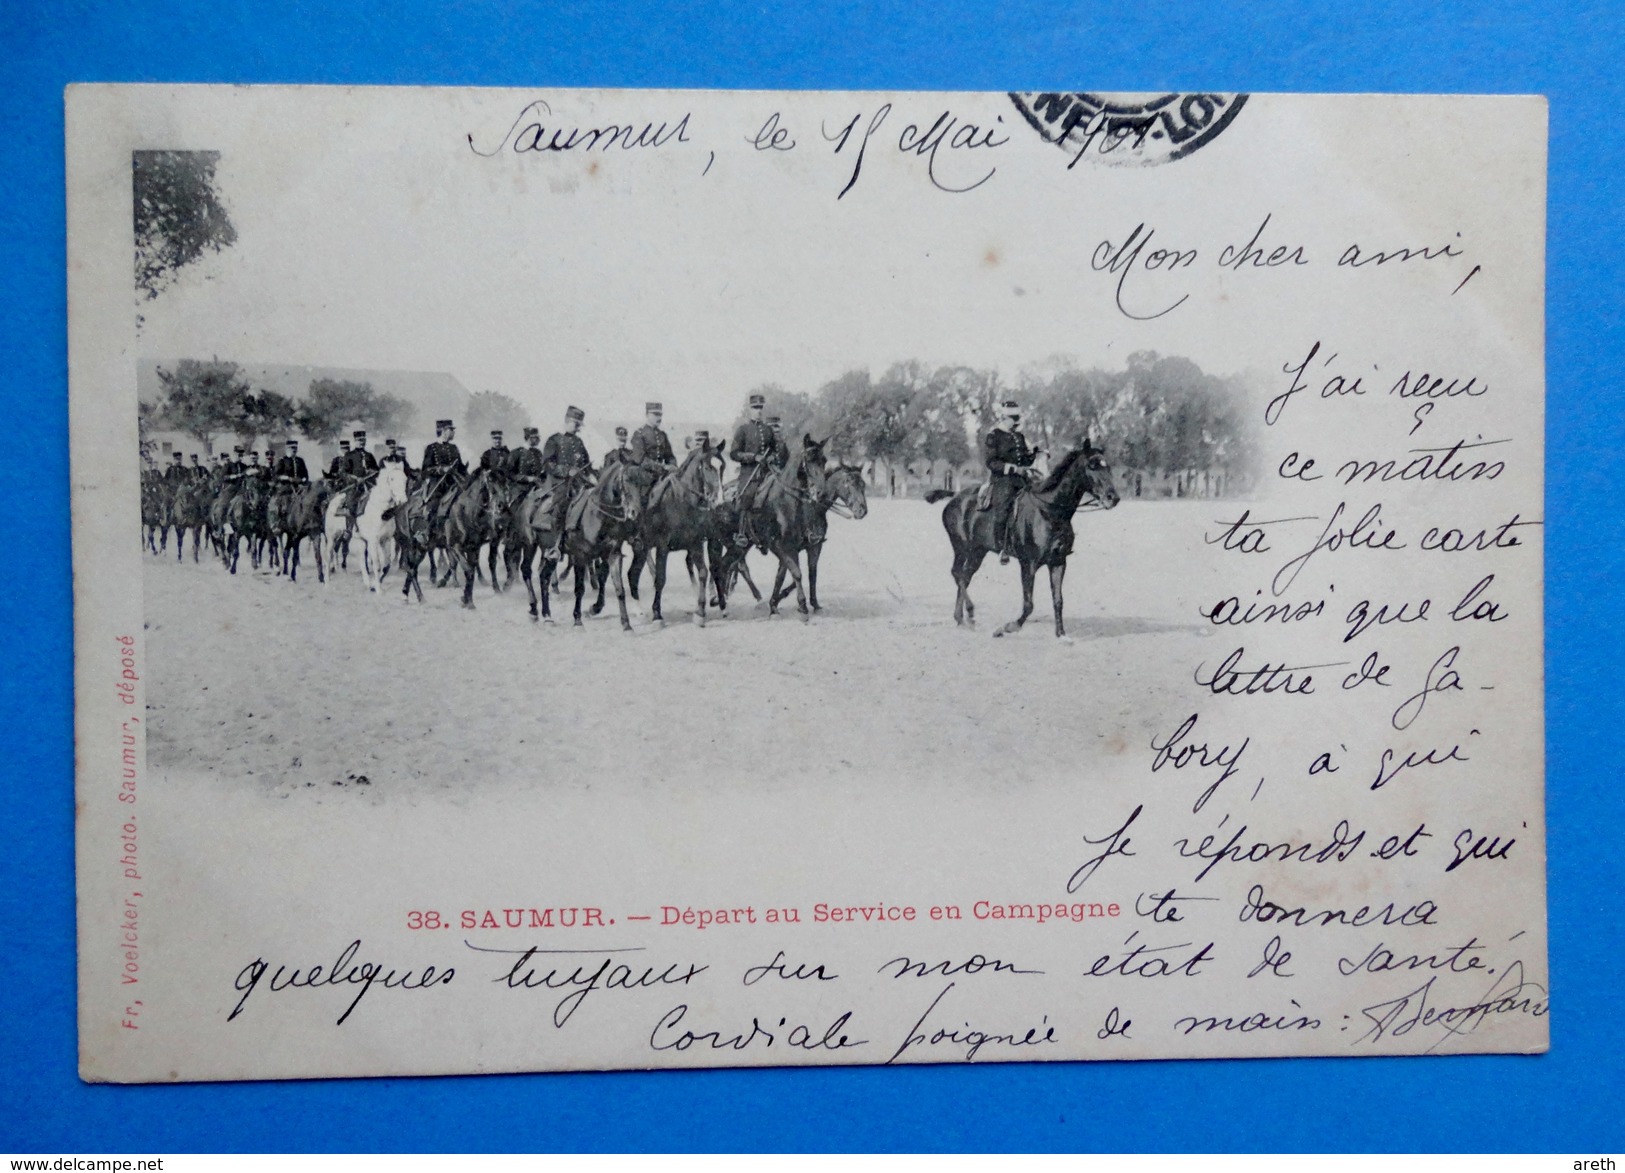 Saumur, le 15 Mai 1901
Mon cher ami,
J'ai reçu
ce matin
ta jolie carte
ainsi que la
lettre de Ga-
bory, à qui
je réponds et qui
38. SAUMUR. — Départ au Service en Campagne te donnera
quelques tuyaux sur mon état de santé.
Cordiale poignée de main : Bernard
Fr, Voelcker, photo. Saumur, déposé
www.delcampe.net
areth